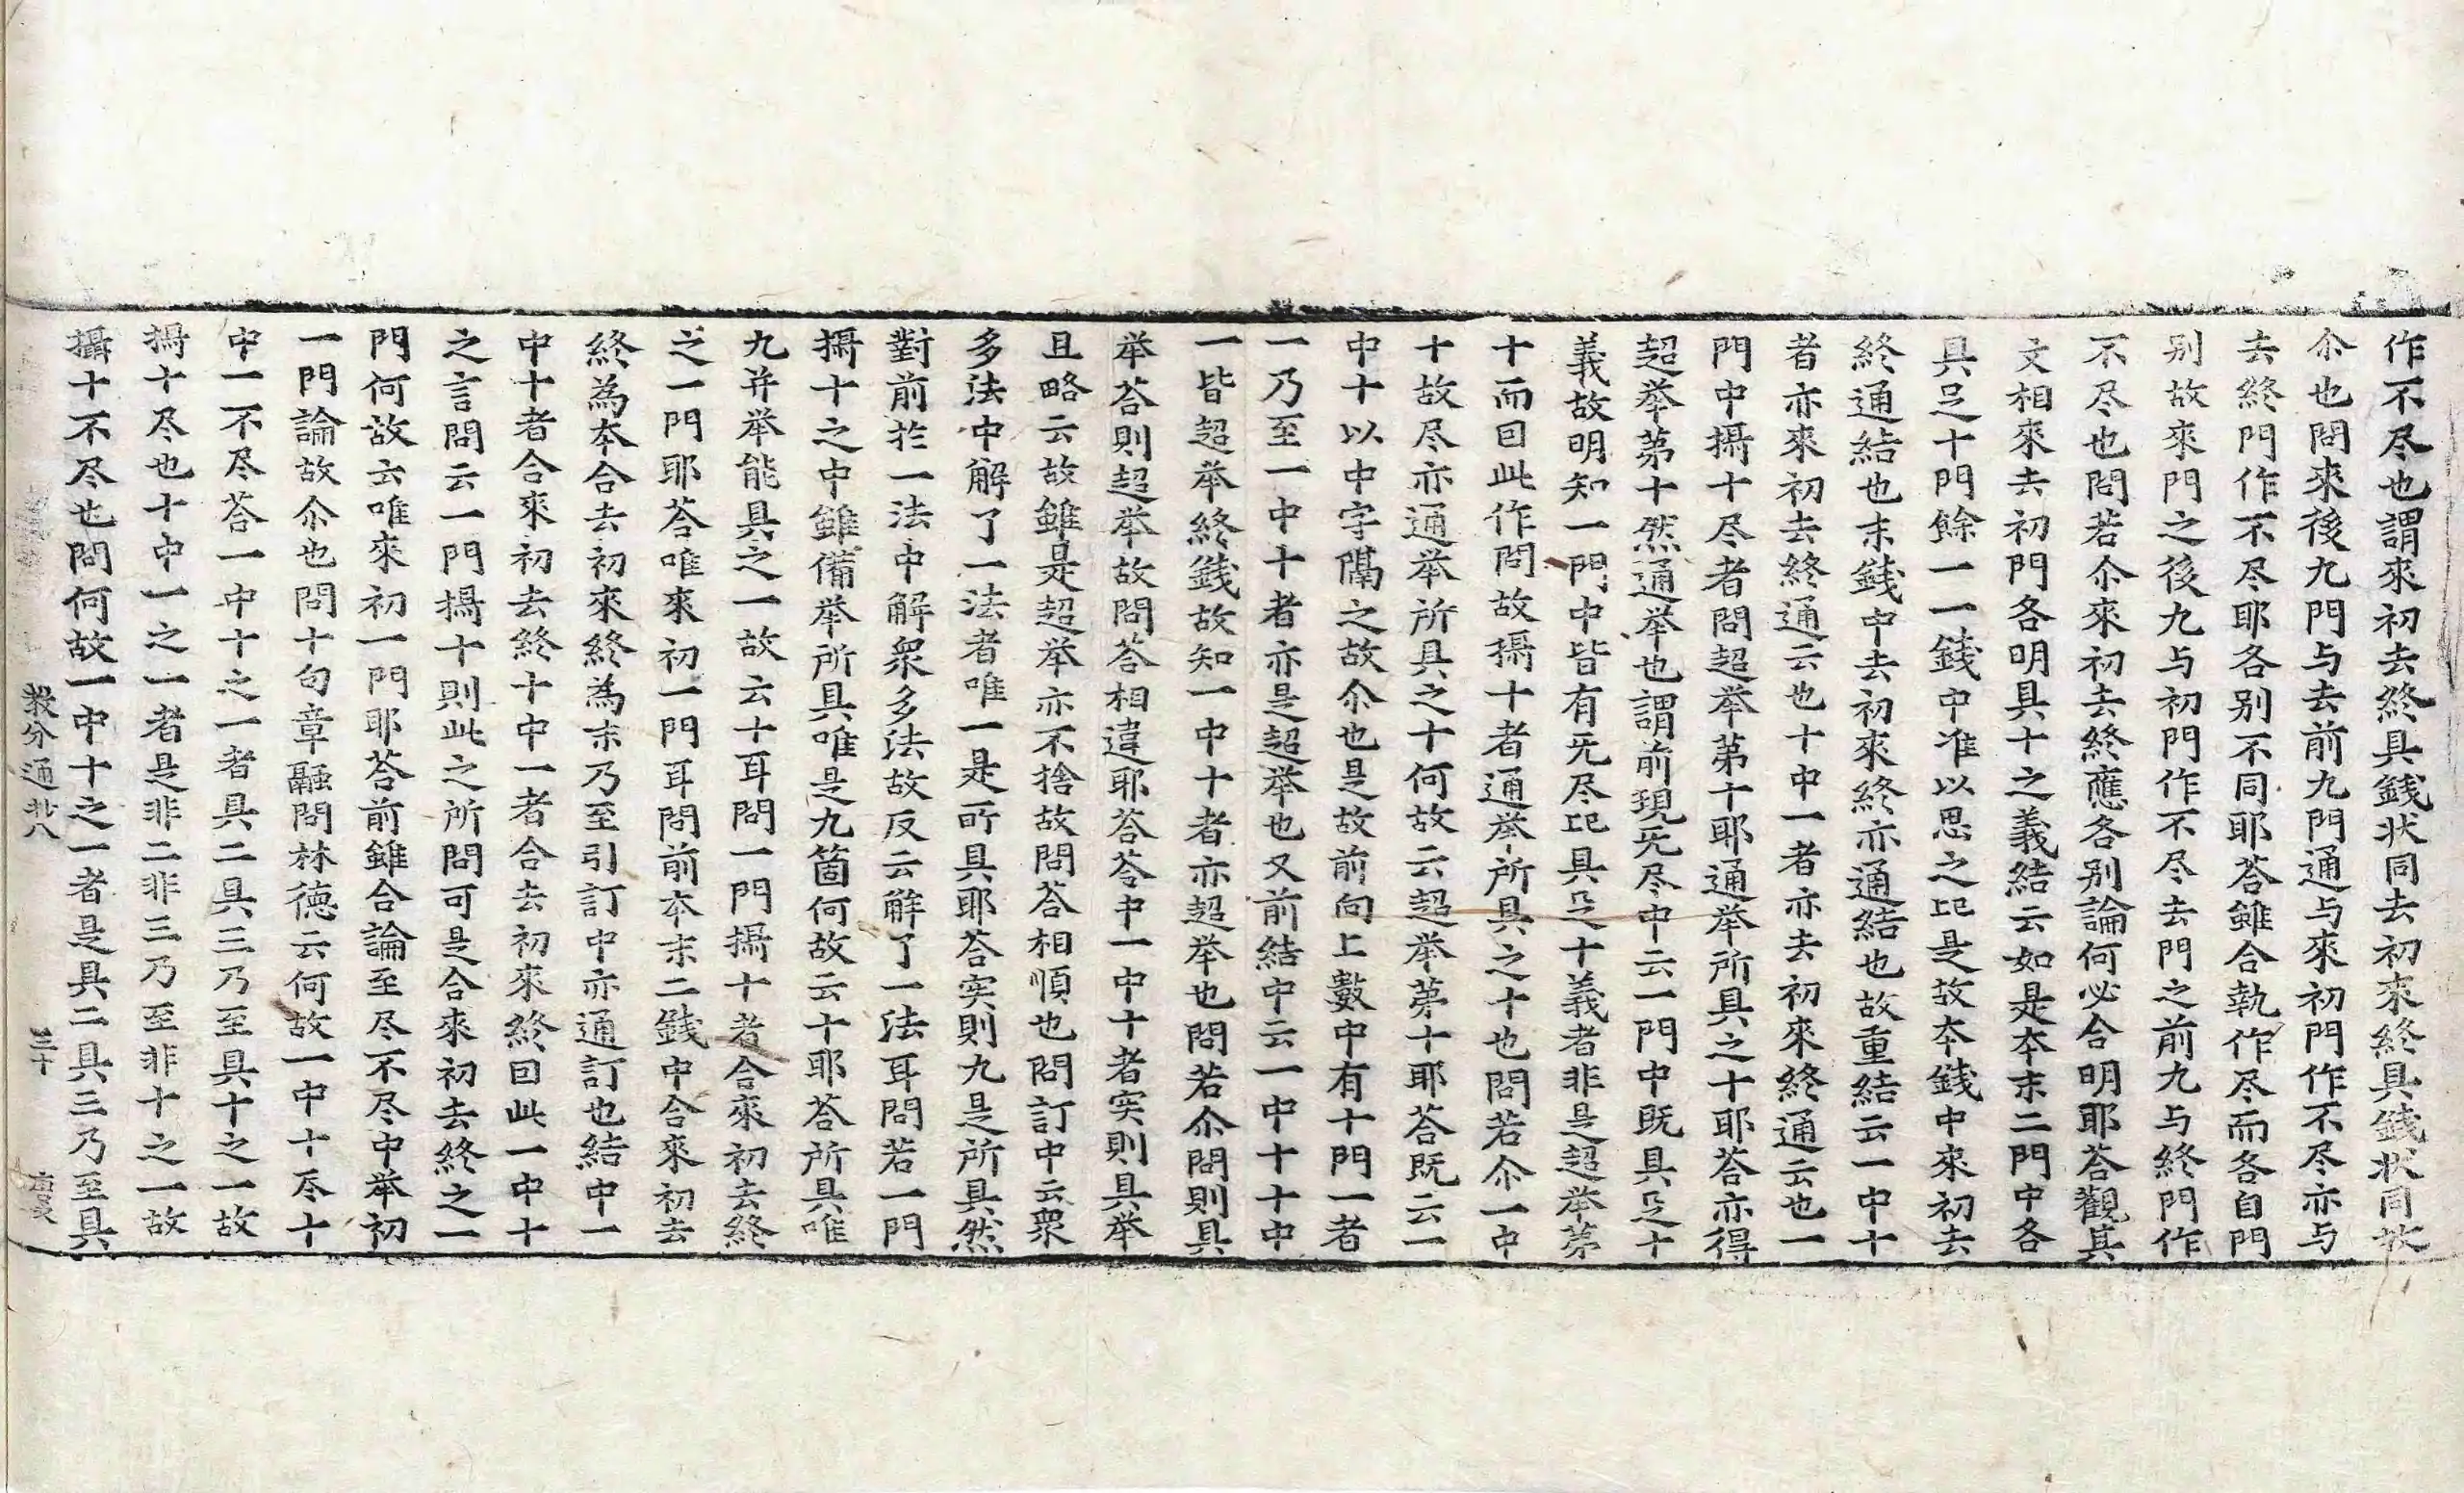 作不尽也謂來初去終具錢状同去初來終具錢状同故
尒也問來後九門与去前九門通与來初門作不尽亦与
去終門作不尽耶各别不同耶荅雖合執作尽而各自門
别故來門之後九与初門作不尽去門之前九与終門作
不尽也問若尒來初去終應各别論何必合明耶荅觀其
文相來去初門各明具十之義結云如是本末二門中各
具足十門餘一一錢中准以思之比是故本錢中來初去
終通結也末錢中去初來終亦通結也故重結云一中十
者亦來初去終通云也十中一者亦去初來終通云也一
門中攝十尽者問超举苐十耶通举所具之十耶荅亦得
超举苐十然通举也謂前現旡尽中云一門中既具足十
義故明知一門中皆有旡尽比具足十義者非是超举苐
十而囙此作問故攝十者通举所具之十也問若尒一中
十故尽亦通举所具之十何故云超举苐十耶荅既云一
中十以中字隔之故尒也是故前向上數中有十門一者
一乃至一中十者亦是超举也又前結中云一中十十中
一皆超举終錢故知一中十者亦超举也問若尒問則具
举荅則超举故問荅相違耶荅荅中一中十者实則具举
且略云故雖是超举亦不捨故問荅相順也問訂中云衆
多法中解了一法者唯一是所具耶荅实則九是所具然
對前扵一法中解衆多法故反云解了一法耳問若一門
攝十之中雖備举所具唯是九箇何故云十耶荅所具唯
九并举能具之一故云十耳問一門攝十者合來初去終
之一門耶荅唯來初一門耳問前本末二錢中合來初去
終為本合去初來終為末乃至引訂中亦通訂也結中一
中十者合來初去終十中一者合去初來終囙此一中十
之言問云一門攝十則此之所問可是合來初去終之一
門何故云唯來初一門耶荅前雖合論至尽不尽中举初
一門論故尒也問十句章融問林德云何故一中十尽十
中一不尽荅一中十之一者具二具三乃至具十之一故
攝十尽也十中一之一者是非二非三乃至非十之一故
攝十不尽也問何故一中十之一者是具二具三乃至具
叢分通卄八 三十